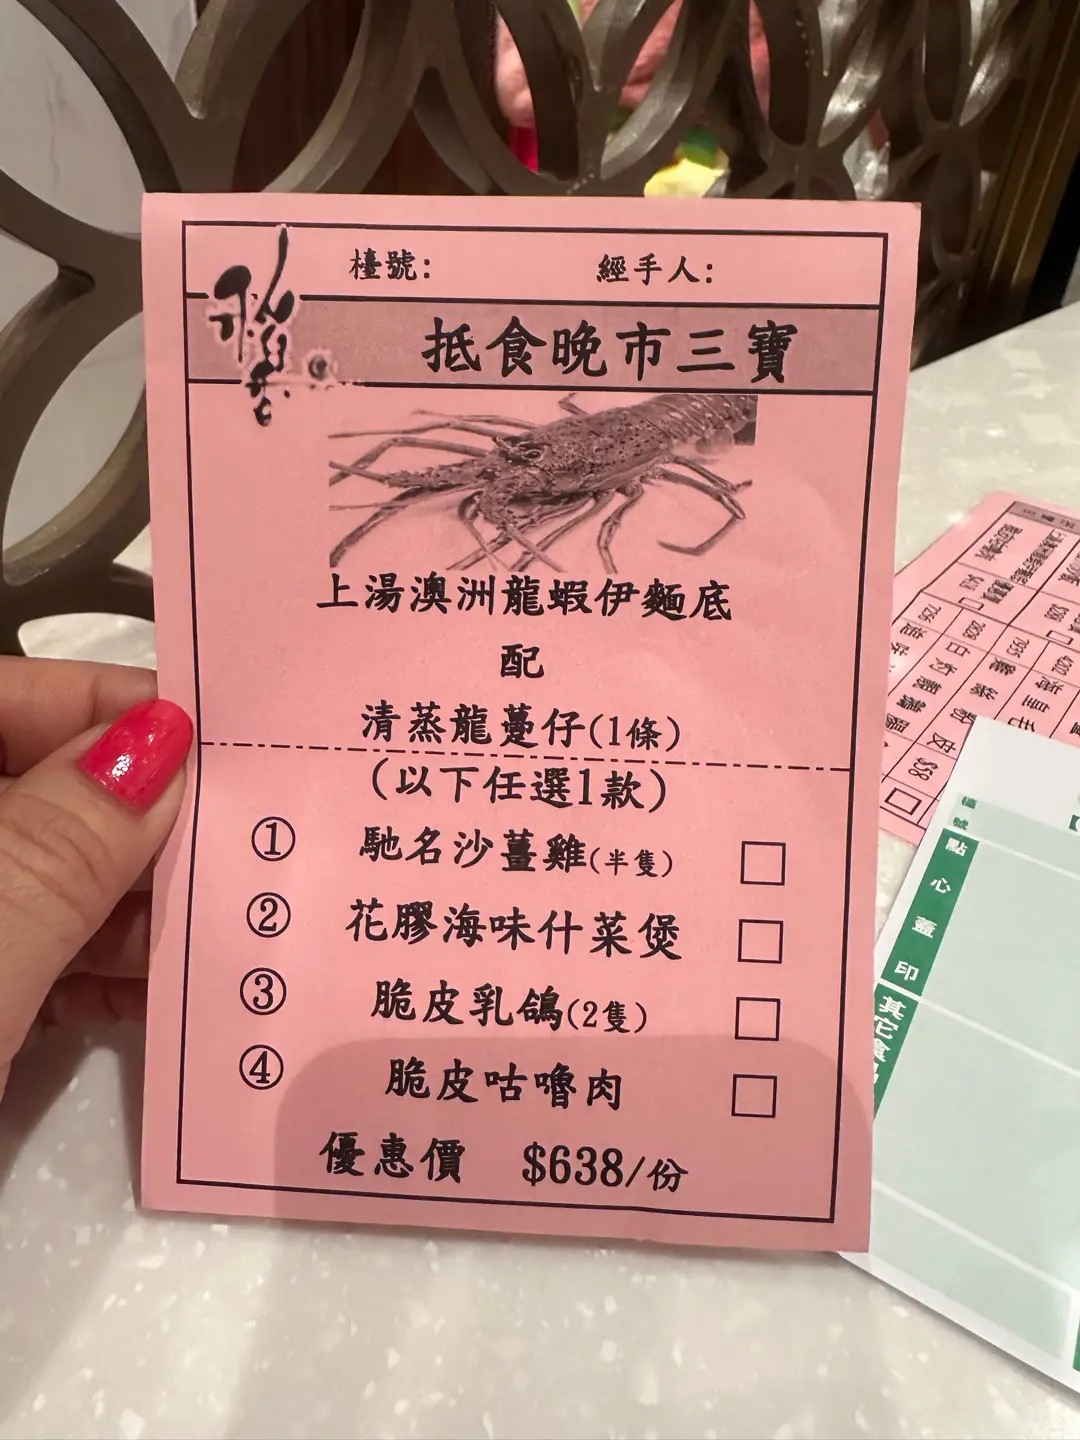 檯號:
經手人:
抵食晚市三寶
上湯澳洲龍蝦伊麵底
配
清蒸龍躉仔(1條)
(以下任選1款)
① 馳名沙薑雞(半隻)
② 花膠海味什菜煲
③ 脆皮乳鴿(2隻)
④ 脆皮咕嚕肉
優惠價 $638/份
檯號
點心蓋印
其它食品
$58